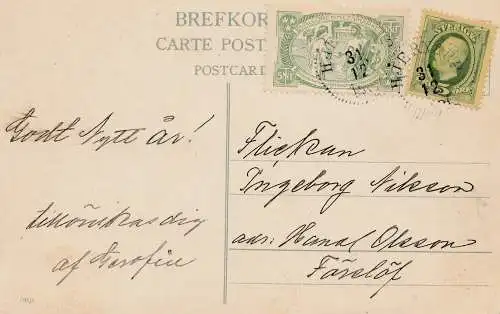 BREFKOR
CARTE POST
POSTCARD
SVERIGE
31
12
31
12
Godt Nytt år!
tillönskas dig
af
Flickan
Ingeborg Nilsson
adr: Hanal Olsson
Förslöf